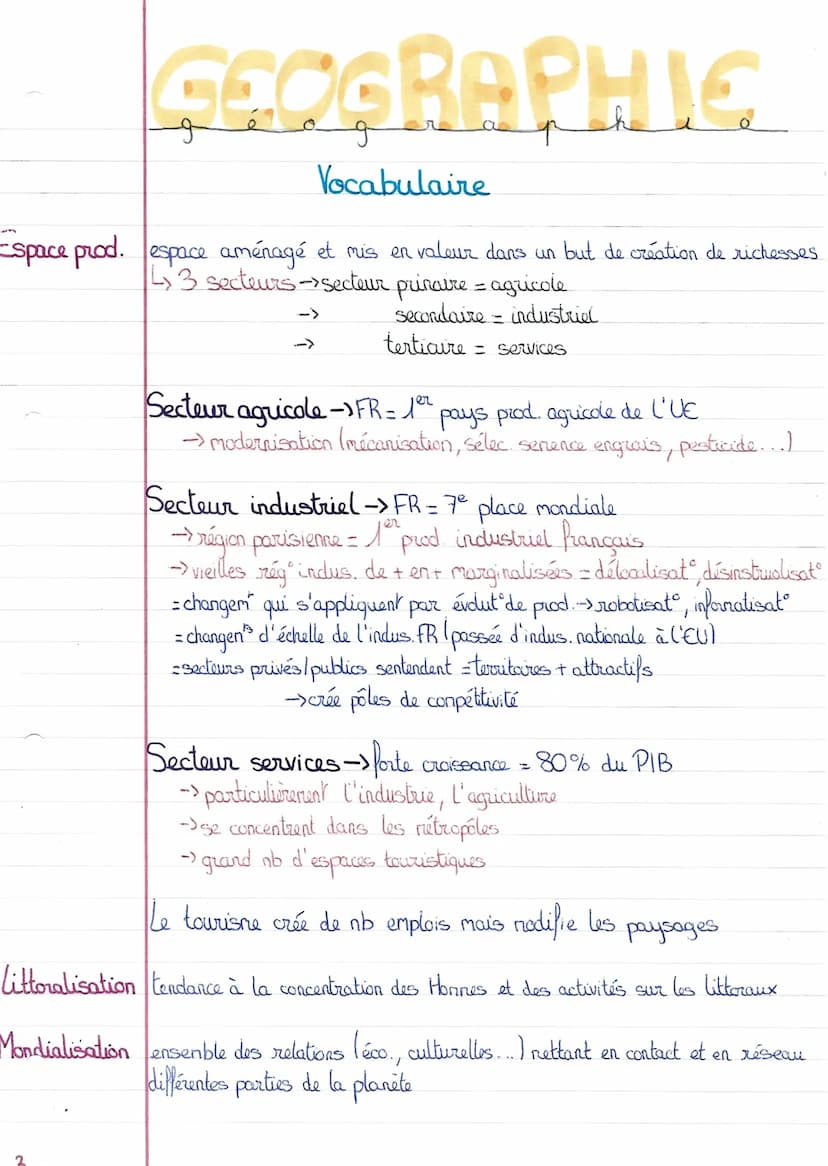 GEOGRAPHIE
géographie
Vocabulaire
Espace prod. espace aménagé et mis en valeur dans un but de création de richesses
↳ 3 secteurs → secteur primaire = agricole
→ secondaire = industriel
→ tertiaire = services
Secteur agricole → FR = 1er pays prod. agricole de l'UE
→ modernisation (mécanisation, sélec. semence engrais, pesticide...)
Secteur industriel → FR = 7e place mondiale
→ région parisienne = 1er prod. industriel français
→ vieilles rég° indus. de + en + marginalisées = délocalisat°, désinstruolisat°
= changemt qui s'appliquent par évolut° de prod. → robotisat°, informatisat°
= changemts d'échelle de l'indus. FR (passée d'indus. nationale à l'EU)
= secteurs privés/publics sentendent = territoires + attractifs
→ crée pôles de compétitivité
Secteur services → forte croissance = 80% du PIB
→ particulièrement l'industrie, l'agriculture
→ se concentrent dans les métropoles
→ grand nb d'espaces touristiques
Le tourisme crée de nb emplois mais modifie les paysages
Littoralisation tendance à la concentration des Hommes et des activités sur les littoraux
Mondialisation ensemble des relations (éco., culturelles...) mettant en contact et en réseau
différentes parties de la planète
2